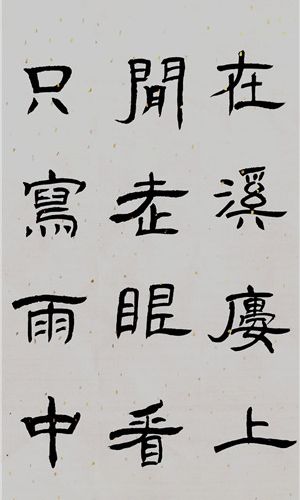 在溪廔上
閒老眼看
只寫雨中